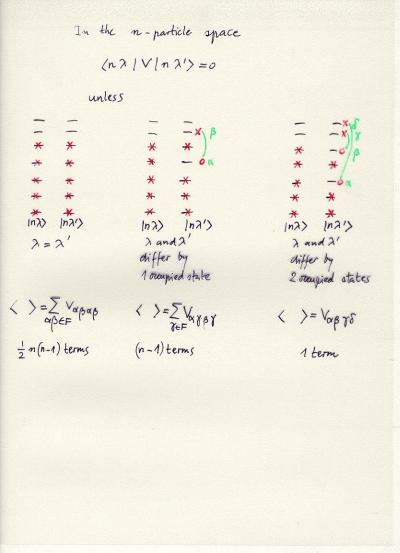 In the n-particle space
⟨nλ|V|nλ'⟩=0
unless
β
α
δ
γ
β
α
|nλ⟩ |nλ'⟩
λ = λ'
|nλ⟩ |nλ'⟩
λ and λ'
differ by
1 occupied state
|nλ⟩ |nλ'⟩
λ and λ'
differ by
2 occupied states
⟨ ⟩ = ∑ Vαβαβ
αβ∈F
½ n(n-1) terms
⟨ ⟩ = ∑ Vαγβγ
γ∈F
(n-1) terms
⟨ ⟩ = Vαβγδ
1 term